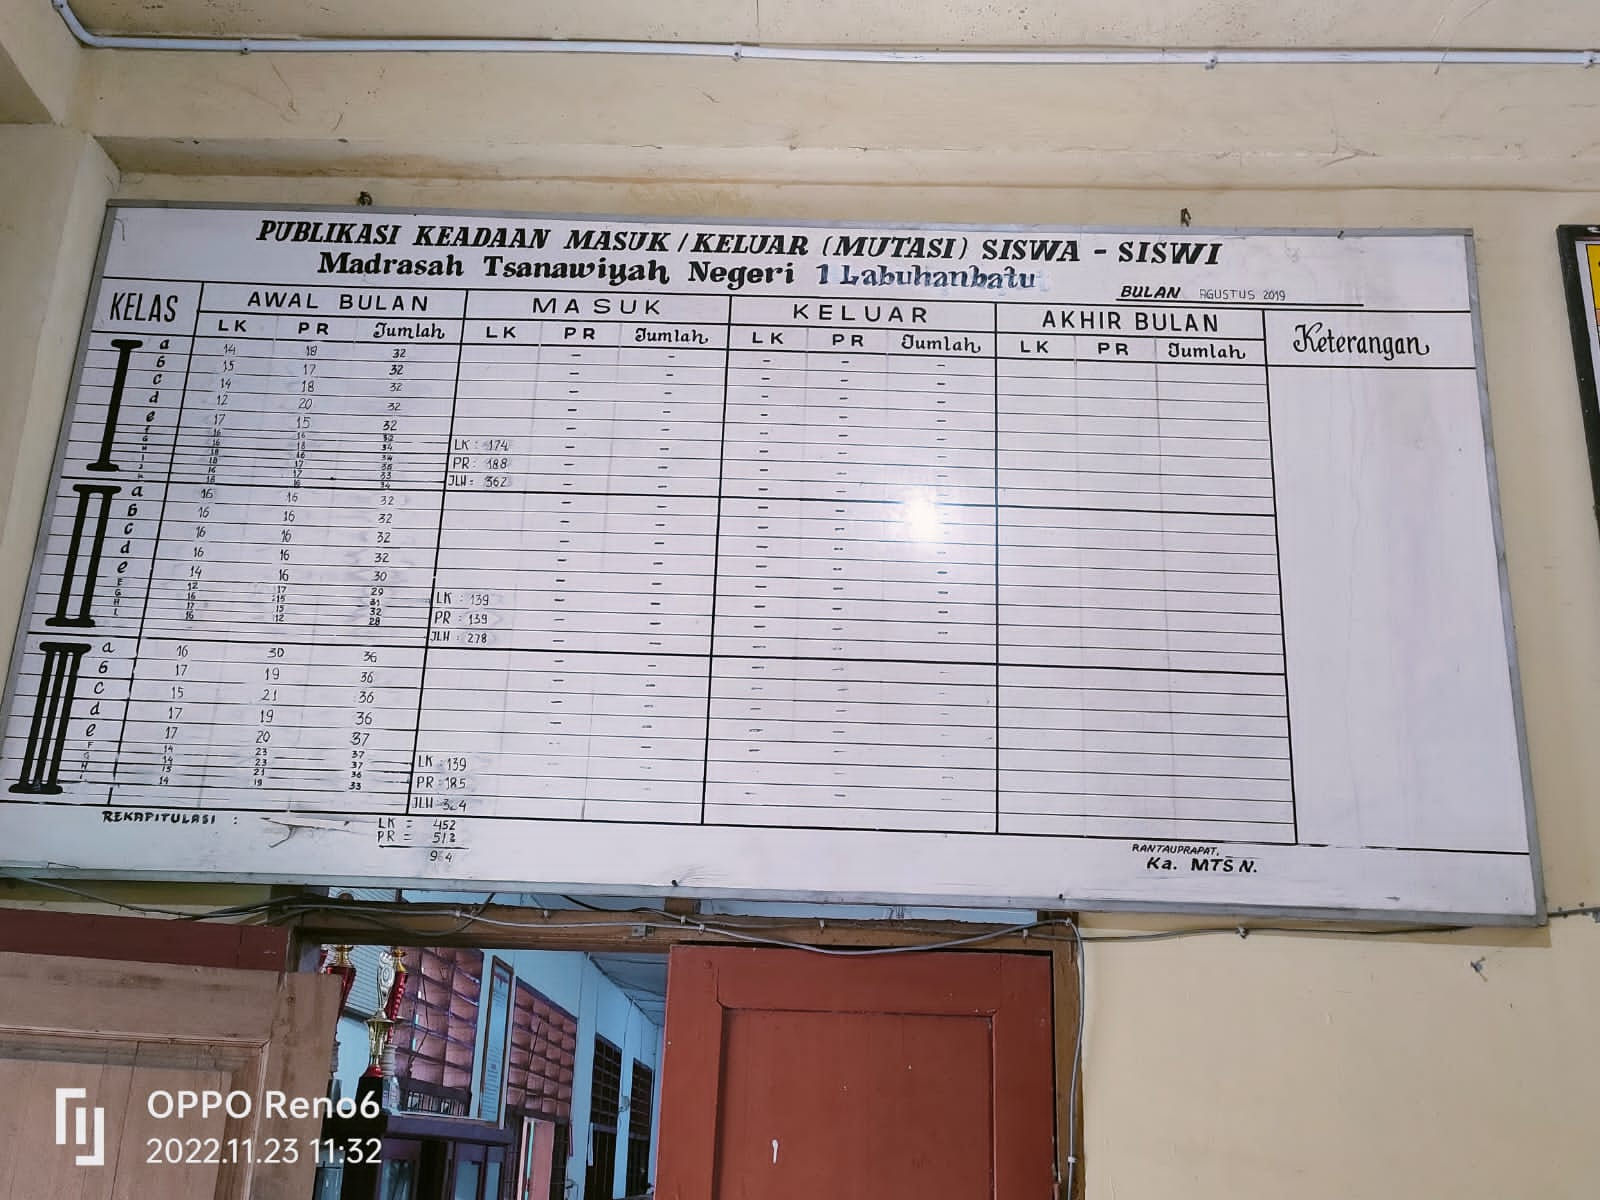 PUBLIKASI KEADAAN MASUK / KELUAR (MUTASI) SISWA - SISWI
Madrasah Tsanawiyah Negeri 1 Labuhanbatu
BULAN AGUSTUS 2019
KELAS AWAL BULAN MASUK KELUAR AKHIR BULAN Keterangan
LK PR Jumlah LK PR Jumlah LK PR Jumlah LK PR Jumlah
I a 14 18 32 - - - - -
b 15 17 32 - - - - -
c 14 18 32 - - - - -
d 12 20 32 - - - - -
e 17 15 32 - - - - -
16 16 32
G 16 18 34 LK : 174
18 16 34
18 17 35 PR : 188
16 17 33
18 16 34 JLH : 362
II a 16 16 32 - - - - -
b 16 16 32 - - - - -
c 16 16 32 - - - - -
d 16 16 32 - - - - -
e 14 16 30 - - - - -
F 12 17 29
G 16 15 31 LK : 139
H 17 15 32 PR : 139
I 16 12 28
JLH : 278
III a 16 30 36 - - - - -
b 17 19 36 - - - - -
c 15 21 36 - - - - -
d 17 19 36 - - - - -
e 17 20 37 - - - - -
F 14 23 37 LK : 139
G 14 23 37
H 15 21 36 PR : 185
14 19 33
JLH 3 4
REKAPITULASI :
LK = 452
PR = 512
9 4
RANTAUPRAPAT,
Ka. MTSN.
OPPO Reno6
2022.11.23 11:32